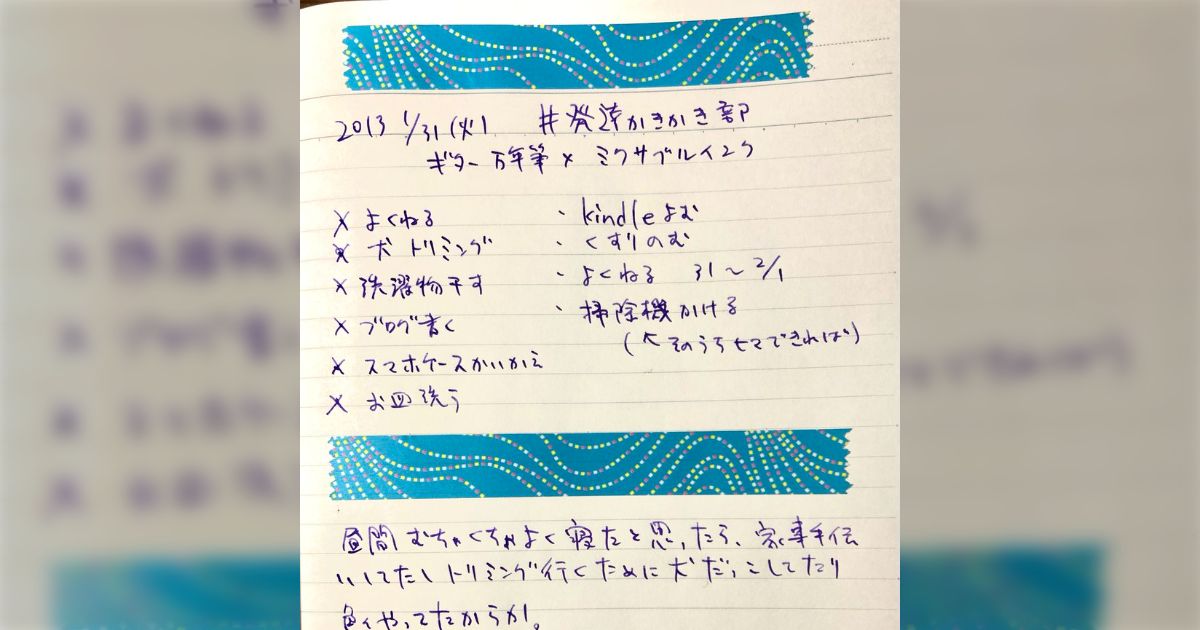 2013 1/31(火) #発達かきかき部
ギター万年筆×ミクサブルインク
× よくねる
× 犬 トリミング
× 洗濯物干す
× ブログ書く
× スマホケースかいかえ
× お皿洗う
・ kindleよむ
・ くすりのむ
・ よくねる 31〜2/1
・ 掃除機かける
(↖そのうちヒマできれば)
昼間むちゃくちゃよく寝たと思ったら、家事手伝
いしてたしトリミング行くために犬だっこしてたり
色々やってたからか。